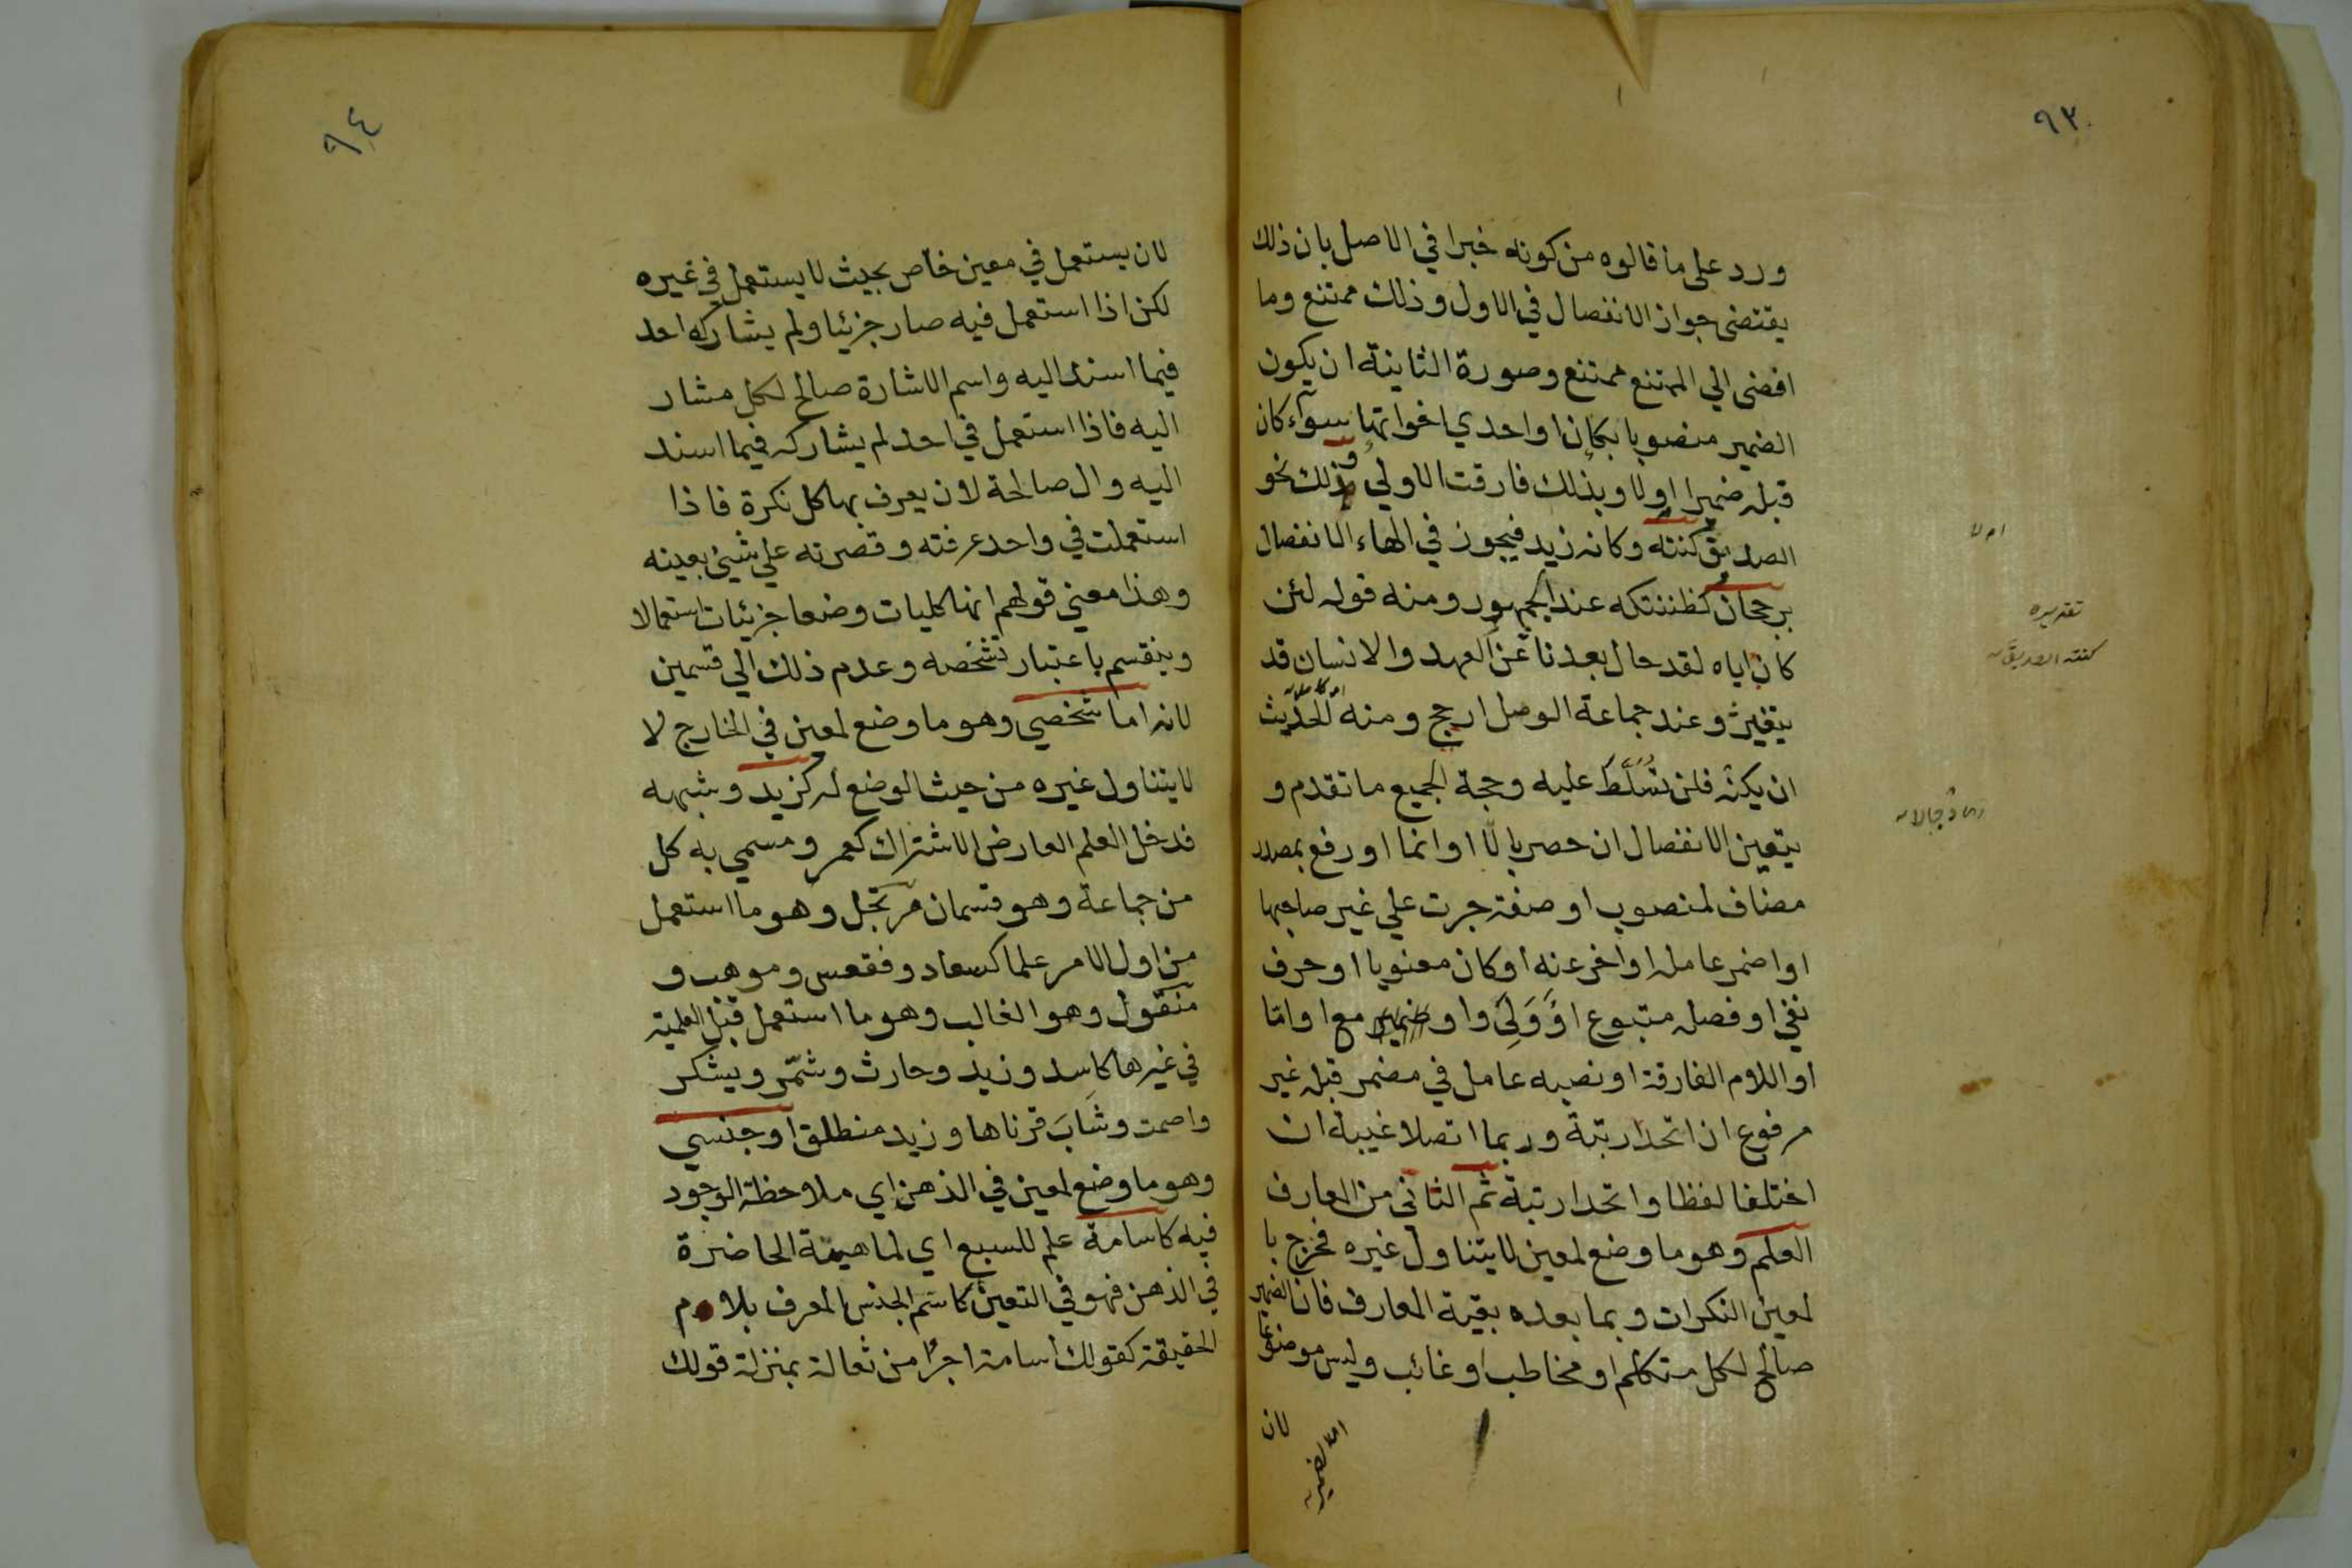 ٩٣
ورد على ما قالوه من كونه خبرا في الاصل بان ذلك
يقتضى جواز الانفصال في الاول وذلك ممتنع وما
افضى الي الممتنع ممتنع وصورة الثانية ان يكون
الضمير منصوبا بكان او احدي اخواتها سوآء كان
قبله ضمير ام لا وبذلك فارقت الاولي وذلك نحو
الصديق كنته وكانه زيد فيجوز في الهاء الانفصال
برجحان كظننتكه عند الجمهور ومنه قوله لئن
كان اياه لقد حال بعدنا عن العهد والانسان قد
يتغير وعند جماعة الوصل ارجح ومنه الحديث
ان يكنه فلن تسلط عليه وحجة الجميع ما تقدم و
يتعين الانفصال ان حصر بالا او انما او رفع بمصدر
مضاف لمنصوب او صفة جرت علي غير صاحبها
او اضمر عامله او اخر عنه او كان معنويا او حرف
نفي او فصله متبوع او ولي واو مع او امّا
او اللام الفارقة او نصبه عامل في مضمر قبله غير
مرفوع ان اتحدا رتبة وربما اتصلا غيبة ان
اختلفا لفظا واتحدا رتبة ثم الثاني من المعارف
العلم وهو ما وضع لمعين لا يتناول غيره فخرج با
لمعين النكرات وبما بعده بقية المعارف فان الضمير
صالح لكل متكلم او مخاطب او غائب وليس موضوعا
لان
ام لا
تقديره
كنته الصديق
٩٤
لان يستعمل في معين خاص بحيث لا يستعمل في غيره
لكن اذا استعمل فيه صار جزئيا ولم يشاركه احد
فيما اسند اليه واسم الاشارة صالح لكل مشار
اليه فاذا استعمل في احد لم يشاركه فيما اسند
اليه وال صالحة لان يعرف بها كل نكرة فاذا
استعملت في واحد عرفته وقصرته علي شيئ بعينه
وهذا معني قولهم انها كليات وضعا جزئيات استعمالا
وينقسم باعتبار تشخصه وعدم ذلك الي قسمين
لانه اما شخصي وهو ما وضع لمعين في الخارج لا
لا يتناول غيره من حيث الوضع له كزيد وشبهه
فدخل العلم العارض الاشتراك كعمر ومسمي به كل
من جماعة وهو قسمان مرتجل وهو ما استعمل
من اول الامر علما كسعاد وفقعس وموهب و
منقول وهو الغالب وهو ما استعمل قبل العلمية
في غيرها كاسد وزيد وحارث وشمّر ويشكر
واصمت وشابَ قرناها وزيد منطلق او جنسي
وهو ما وضع لمعين في الذهن اي ملاحظة الوجود
فيه كاسامة علم للسبع اي لماهيته الحاضرة
في الذهن فهو في التعين كاسم الجنس المعرف بلام
الحقيقة كقولك اسامة اجرأ من ثعالة بمنزلة قولك